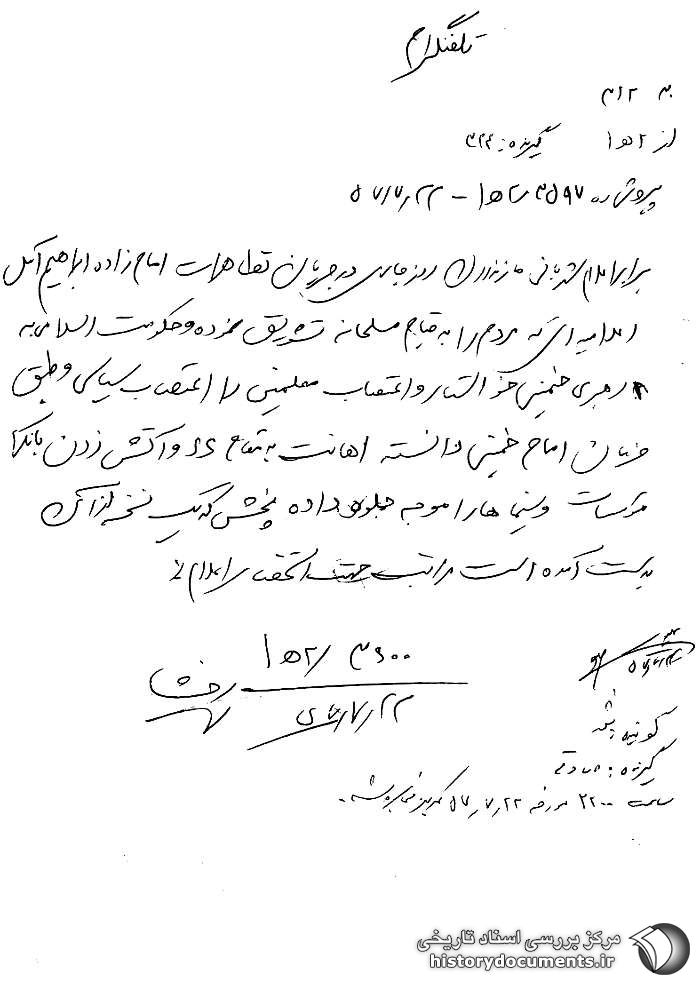 تلفنگرام
به ۳۱۲
از ۲ ه‍ ۱ گیرنده: ۳۲۴
پیرو شماره ۳۵۹۷ / ۲ ه‍ ۱ – ۵۷/۷/۲۲
برابر اعلام شهربانی مازندران روز جاری در جریان تظاهرات امام زاده ابراهیم آمل
اعلامیه ای که مردم را به قیام مسلحانه تشویق نموده و حکومت اسلامی به
رهبری خمینی خواستار و اعتصاب معلمین را اعتصاب سیاسی و طبق
فرمان امام خمینی دانسته اهانت به مقام و آتش زدن بانکها
مؤسسات و سینماها را موجه جلوه داده پخش که یک نسخه از آن
بدست آمده است مراتب جهت استحضار اعلام
۳۶۰۰ / ۲ ه‍ ۱
۷/۲۲
گوینده:
گیرنده: صادقی
ساعت ۲۲۰۰ مورخه ۵۷/۷/۲۲
مرکز بررسی اسناد تاریخی
historydocuments.ir